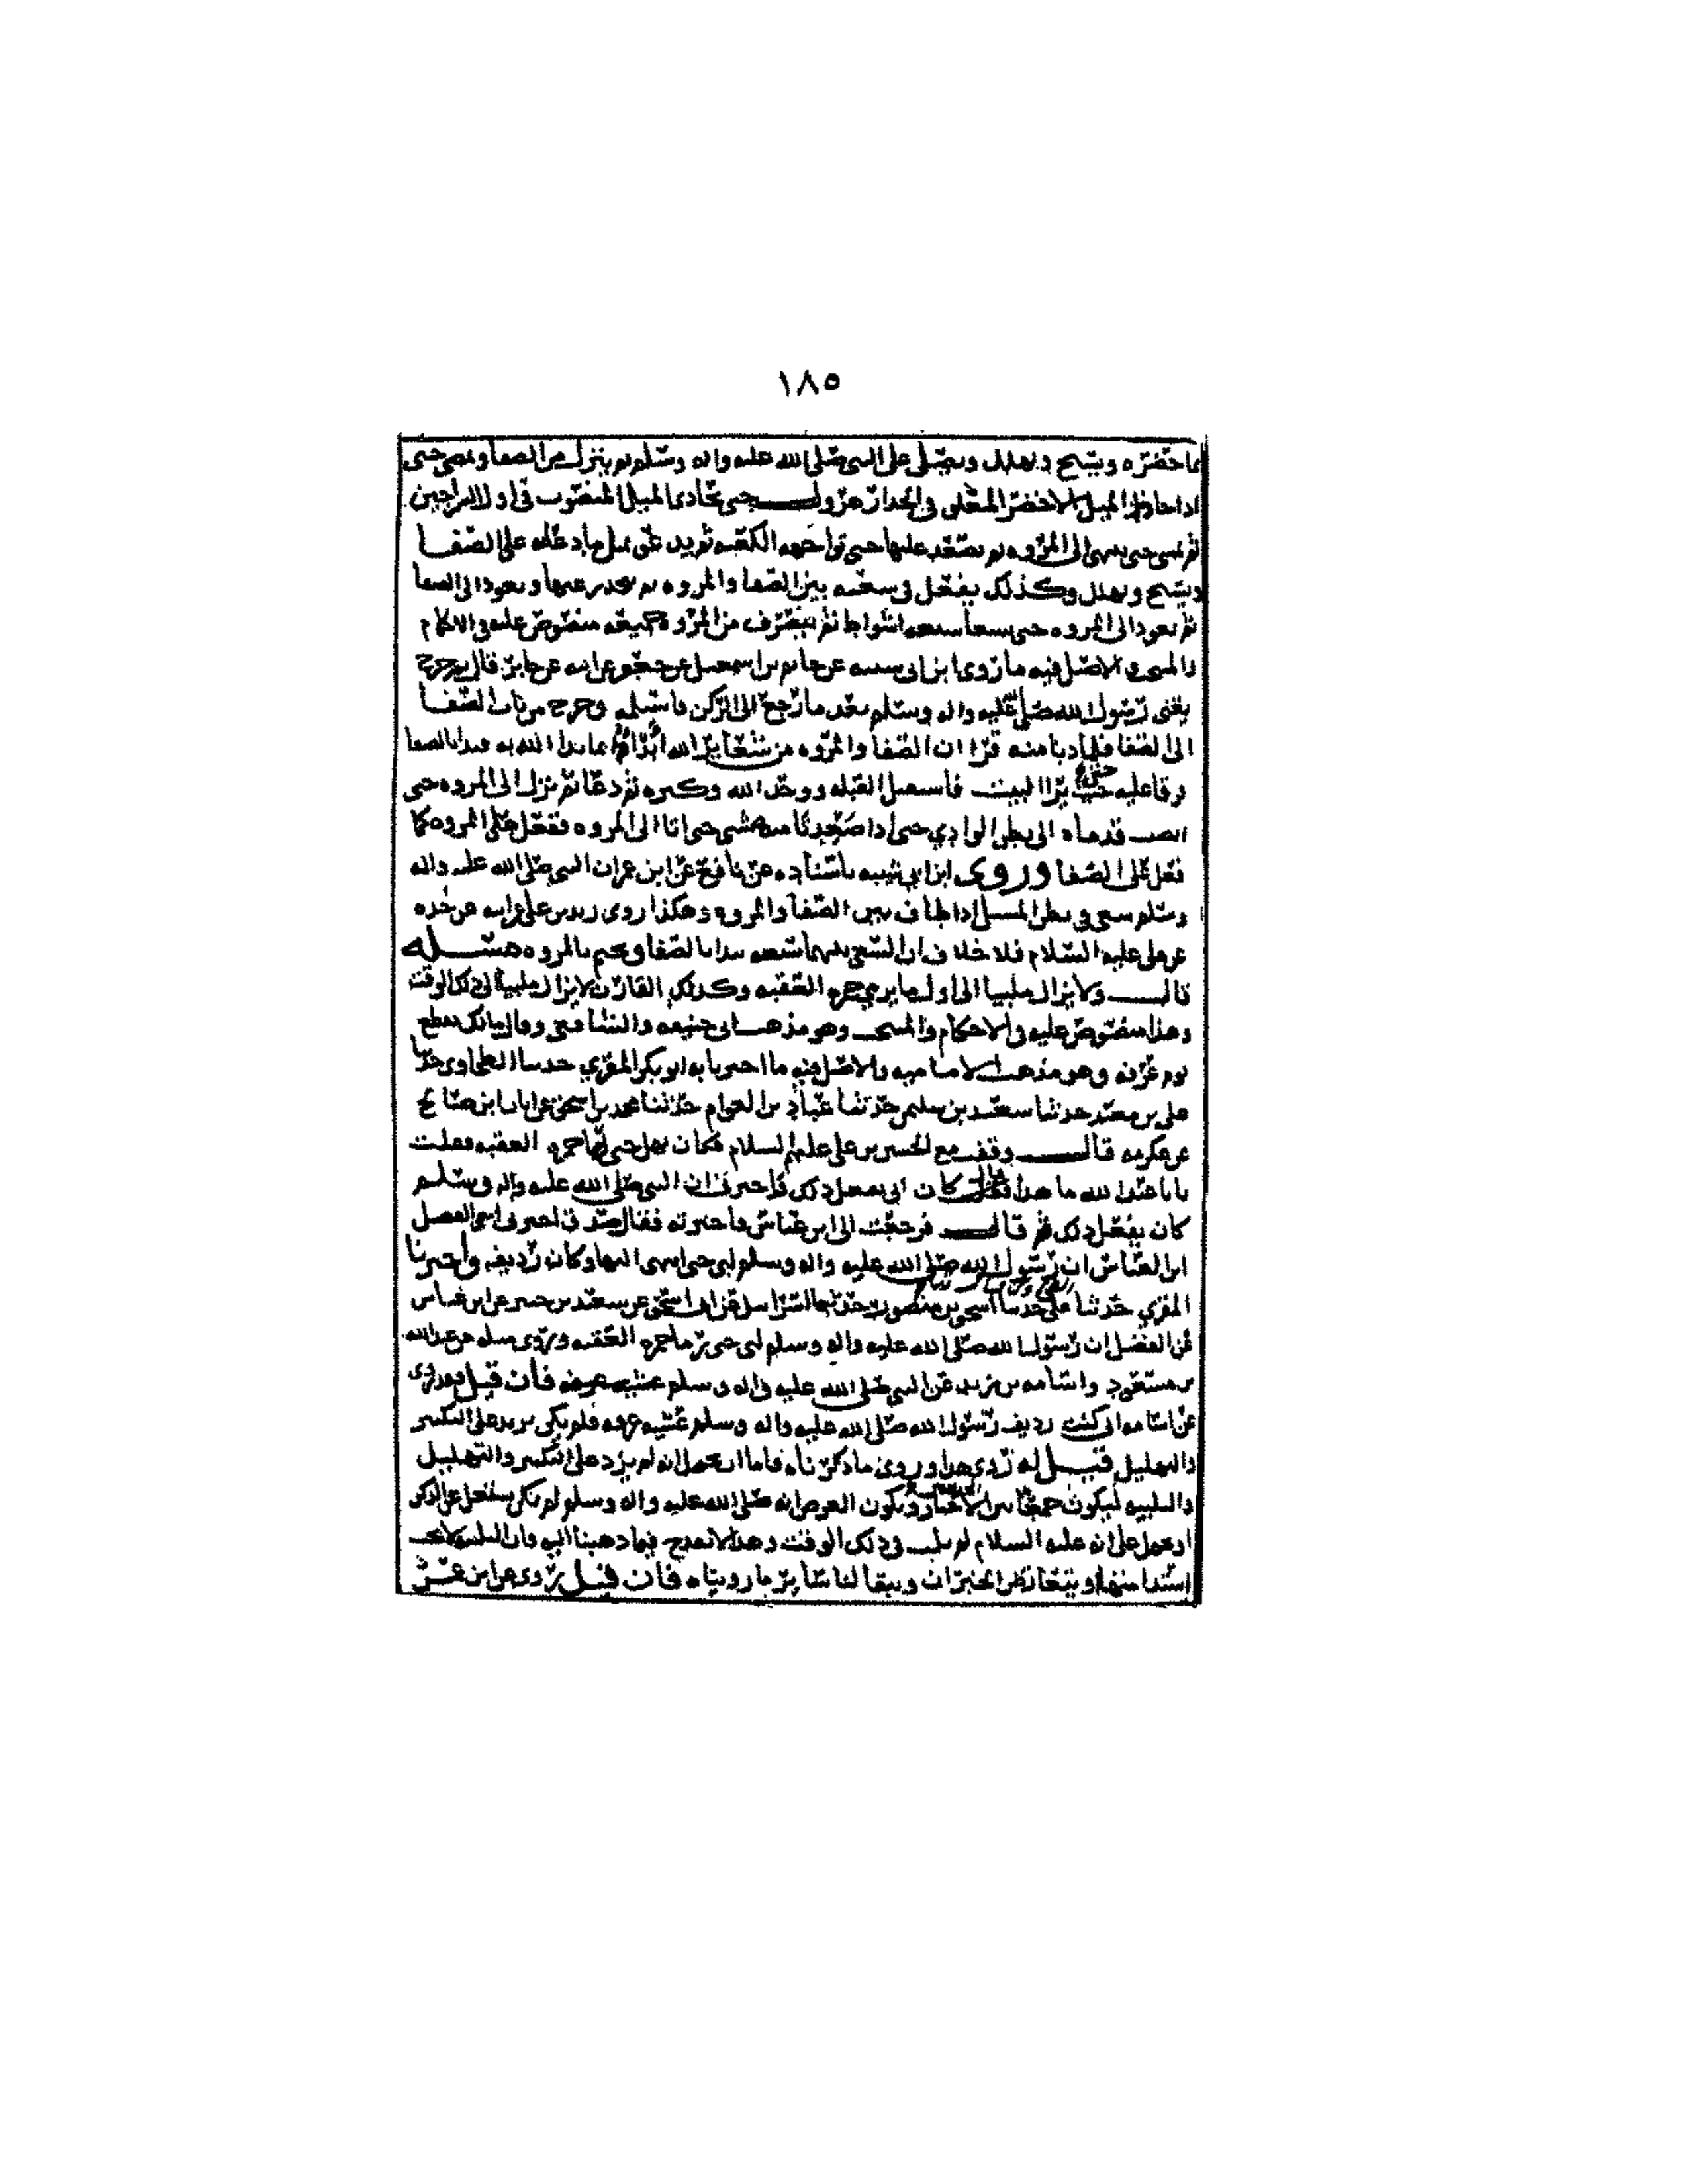 ١٨٥
بما حضره ويسبح ويهلل ويصلي على النبي صلى الله عليه واله وسلم ثم ينزل من الصفا ويمضي حتى
اذا حاذى الميل الاخضر المعلق في الجدار هرول حتى يحاذي الميل المنصوب في اول السراجين
ثم يمشي حتى ينتهي الى المروه ثم يصعد عليها حتى تواجهه الكعبه ثم يدعو بمثل ما دعا به على الصفا
ويسبح ويهلل وكذلك يفعل في سعيه بين الصفا والمروه ثم ينحدر عنها ويعود الى الصفا
ثم يعود الى المروه حتى يسعا سبعه اشواط ثم ينصرف من المروه جميعه منصوص عليه في الاحكام
والمنتخب والاصل فيه ما روى ابن ابي شيبه عن حاتم بن اسمعيل عن جعفر عن ابيه عن جابر قال ثم خرج
يعني رسول الله صلى الله عليه واله وسلم بعد ما رجع الى الركن فاستلمه وخرج من باب الصفا
الى الصفا فلما دنا منه قرا ان الصفا والمروه من شعاير الله ابدأوا بما بدا الله به فبدا بالصفا
فرقا عليه حتى يرا البيت فاستقبل القبله ووحد الله وكبره ثم دعا ثم نزل الى المروه حتى
انصبت قدماه الى بطن الوادي حتى اذا صعدتا مشى حتى اتا الى المروه ففعل على المروه كما
فعل على الصفا وروى ابن ابي شيبه باسناده عن نافع عن ابن عمر ان النبي صلى الله عليه واله
وسلم سعى في بطن المسيل اذا طاف بين الصفا والمروه وهكذا روى زيد بن علي عن ابيه عن جده
عن علي عليه السلام فلا خلاف ان السعي بينهما سبعه يبدا بالصفا ويختم بالمروه مسئله
قال ولا يزال ملبيا الى اول ما يرمي جمره العقبه وكذلك القارن لا يزال ملبيا الى ذلك الوقت
وهذا منصوص عليه في الاحكام والمنتخب وهو مذهب ابي حنيفه والشافعي وقال مالك يقطع
يوم عرفه وهو مذهب الاماميه والاصل فيه ما اخبرنا به ابو بكر المقري حدثنا الطحاوي حدثنا
علي بن معبد حدثنا سعيد بن سليم حدثنا عباد بن العوام حدثنا محمد بن اسحق عن ابان ابن صالح
عن عكرمه قال وقفت مع الحسين بن علي عليهم السلام فكان يهل حتى رما جمره العقبه فقلت
يا با عبد الله ما هذا فقال كان ابي يفعل ذلك فاخبرني ان النبي صلى الله عليه واله وسلم
كان يفعل ذلك ثم قال فرجعت الى ابن عباس فاخبرته فقال صدق اخبرني اخي الفضل
ابن العباس ان رسول الله صلى الله عليه واله وسلم لبى حتى انتهى اليها وكان رديفه واخبرنا
المقري حدثنا علي حدثنا اسحق بن منصور حدثنا اسرايل عن ابي اسحق عن سعيد بن جبير عن ابن عباس
عن الفضل ان رسول الله صلى الله عليه واله وسلم لبى حتى رما جمره العقبه وروى مثله عن عبدالله
بن مسعود واسامه بن زيد عن النبي صلى الله عليه واله وسلم عشيه عرفه فان قيل فقد روى
عن اسامه اني كنت رديف رسول الله صلى الله عليه واله وسلم عشيه عرفه فلم يكن يزيد على التكبير
والتهليل قيل له روى هذا وروى ما ذكرناه فاما ان نحمل انه لم يزد على التكبير والتهليل
والتلبيه ليكون جمعا بين الاخبار ويكون الغرض انه صلى الله عليه واله وسلم لم يكن يشتغل عن الذكر
او نحمل على انه عليه السلام لم يلب في ذلك الوقت وهذا لا يقدح فيما ذهبنا اليه فان التلبيه لا يجب
استدامتها او يتعارض الخبران ويبقا لنا ساير ما رويناه فان قيل روى عن ابن عمر